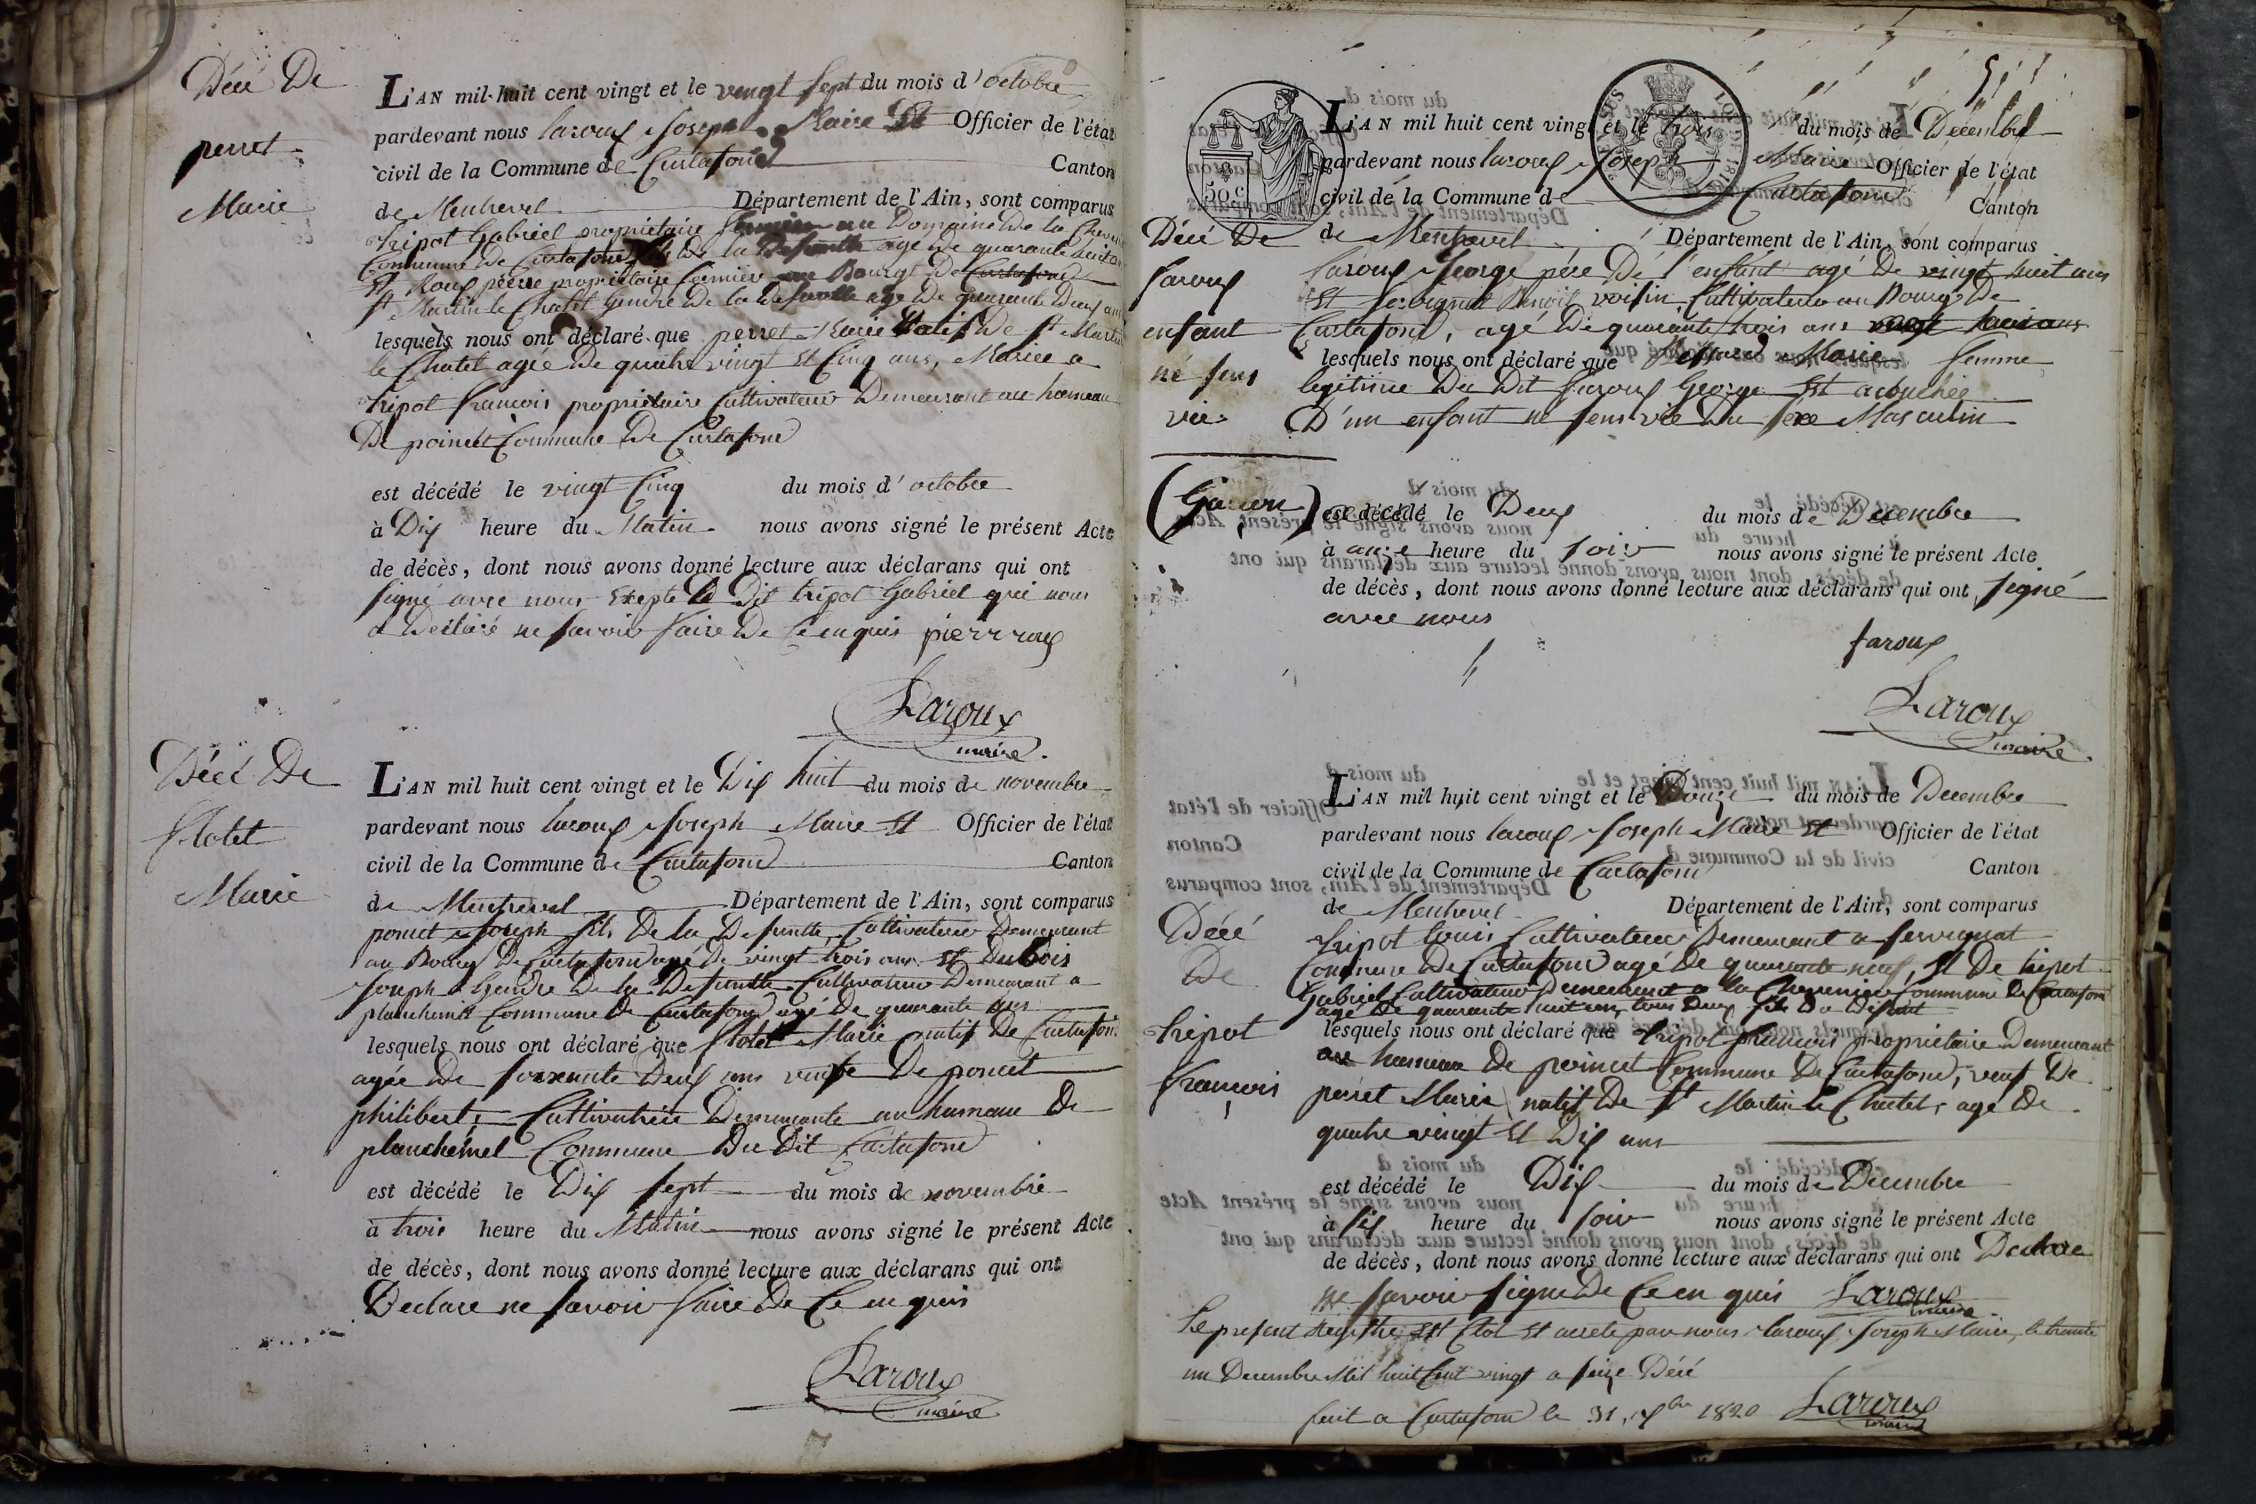 Décé De
perret
Marie
L'AN mil-huit cent vingt et le vingt sept du mois d'octobre
pardevant nous laroux Joseph Maire Et Officier de l'état
civil de la Commune de Curtafond Canton
de Montrevel Département de l'Ain, sont comparus
tripot Gabriel propriétaire fermier au Domaine De la
Commune De Curtafond fils De la Defunte agé De quarante huit ans
Et Roux pierre proprietaire fermier au Bourgt De Curtafond
St Martin le Chatel Gendre De la Defunte age De quarante Deux ans
lesquels nous ont déclaré que perret Marie Natif De St Martin
le Chatel agée De quatre vingt Et Cinq ans, Mariée a
tripot francois proprietaire Cultivateur Demeurant au hameau
De poincet Commune De Curtafond
est décédé le vingt Cinq du mois d'octobre
à Dix heure du Matin nous avons signé le présent Acte
de décès, dont nous avons donné lecture aux déclarans qui ont
signé avec nous Exepte le Dit tripot Gabriel qui nous
a Declaré ne savoir faire De Ce enquis pierr roux
Laroux
maire
Décé De
Flotet
Marie
L'AN mil huit cent vingt et le Dix huit du mois de novembre
pardevant nous laroux Joseph Maire Et Officier de l'état
civil de la Commune de Curtafond Canton
de Montrevel Département de l'Ain, sont comparus
poncet Joseph fils De la Defunte, Cultivateur Demeurant
au Bourg De Curtafond agé De vingt trois ans Et Dubois
Joseph Gendre De la Defunte Cultivateur Demeurant a
planchemel Commune De Curtafond agé De quarante ans
lesquels nous ont déclaré que Flotet Marie natif De Curtafond
agée De soixante Deux ans veufe De poncet
philibert, Cultivatrice Demeurante au hameau De
planchemel Commune Du Dit Curtafond
est décédé le Dix sept du mois de novembre
à trois heure du Matin nous avons signé le présent Acte
de décès, dont nous avons donné lecture aux déclarans qui ont
Declare ne savoir faire De Ce en quis
Laroux
maire
50 c
L'AN mil huit cent vingt et le trois du mois de Décembre
pardevant nous laroux Joseph Maire Officier de l'état
civil de la Commune de Curtafond Canton
de Montrevel Département de l'Ain, sont comparus
Décé De
laroux
enfant
né sans
vie
(Garcon)
laroux George père De l'enfant agé De vingt huit ans
Et Benoit voisin Cultivateur au Bourg De
Curtafond, agé De quarante trois ans
lesquels nous ont déclaré que Marie femme
legitime Du Dit laroux George Est acouchée
D'un enfant né sans vie Du sexe Masculin
est décédé le Deux du mois de Decembre
à onze heure du soir nous avons signé le présent Acte
de décès, dont nous avons donné lecture aux déclarans qui ont signé
avec nous
laroux
Laroux
maire
Décé
De
tripot
francois
L'AN mil huit cent vingt et le Douze du mois de Decembre
pardevant nous laroux Joseph Maire Et Officier de l'état
civil de la Commune de Curtafond Canton
de Montrevel Département de l'Ain, sont comparus
tripot louis Cultivateur Demeurant a servignat
Commune De Curtafond agé De quarante neuf, Et De tripot
Gabriel Cultivateur Demeurant a la Commune De Curtafond
agé De quarante huit ans tous Deux fils Du Defunt
lesquels nous ont déclaré que tripot francois proprietaire Demeurant
au hameau De poincet Commune De Curtafond, veuf De
perret Marie natif De St Martin le Chatel, age De
quatre vingt Et Dix ans
est décédé le Dix du mois de Décembre
à six heure du soir nous avons signé le présent Acte
de décès, dont nous avons donné lecture aux déclarans qui ont Declare
ne savoir signe De Ce en quis Laroux
maire
Le present Registre Est Clot Et arrete par nous laroux Joseph Maire, le trente
un Decembre Mil huit Cent vingt a seize Décé
fait a Curtafond le 31 Xbre 1820 Laroux
maire